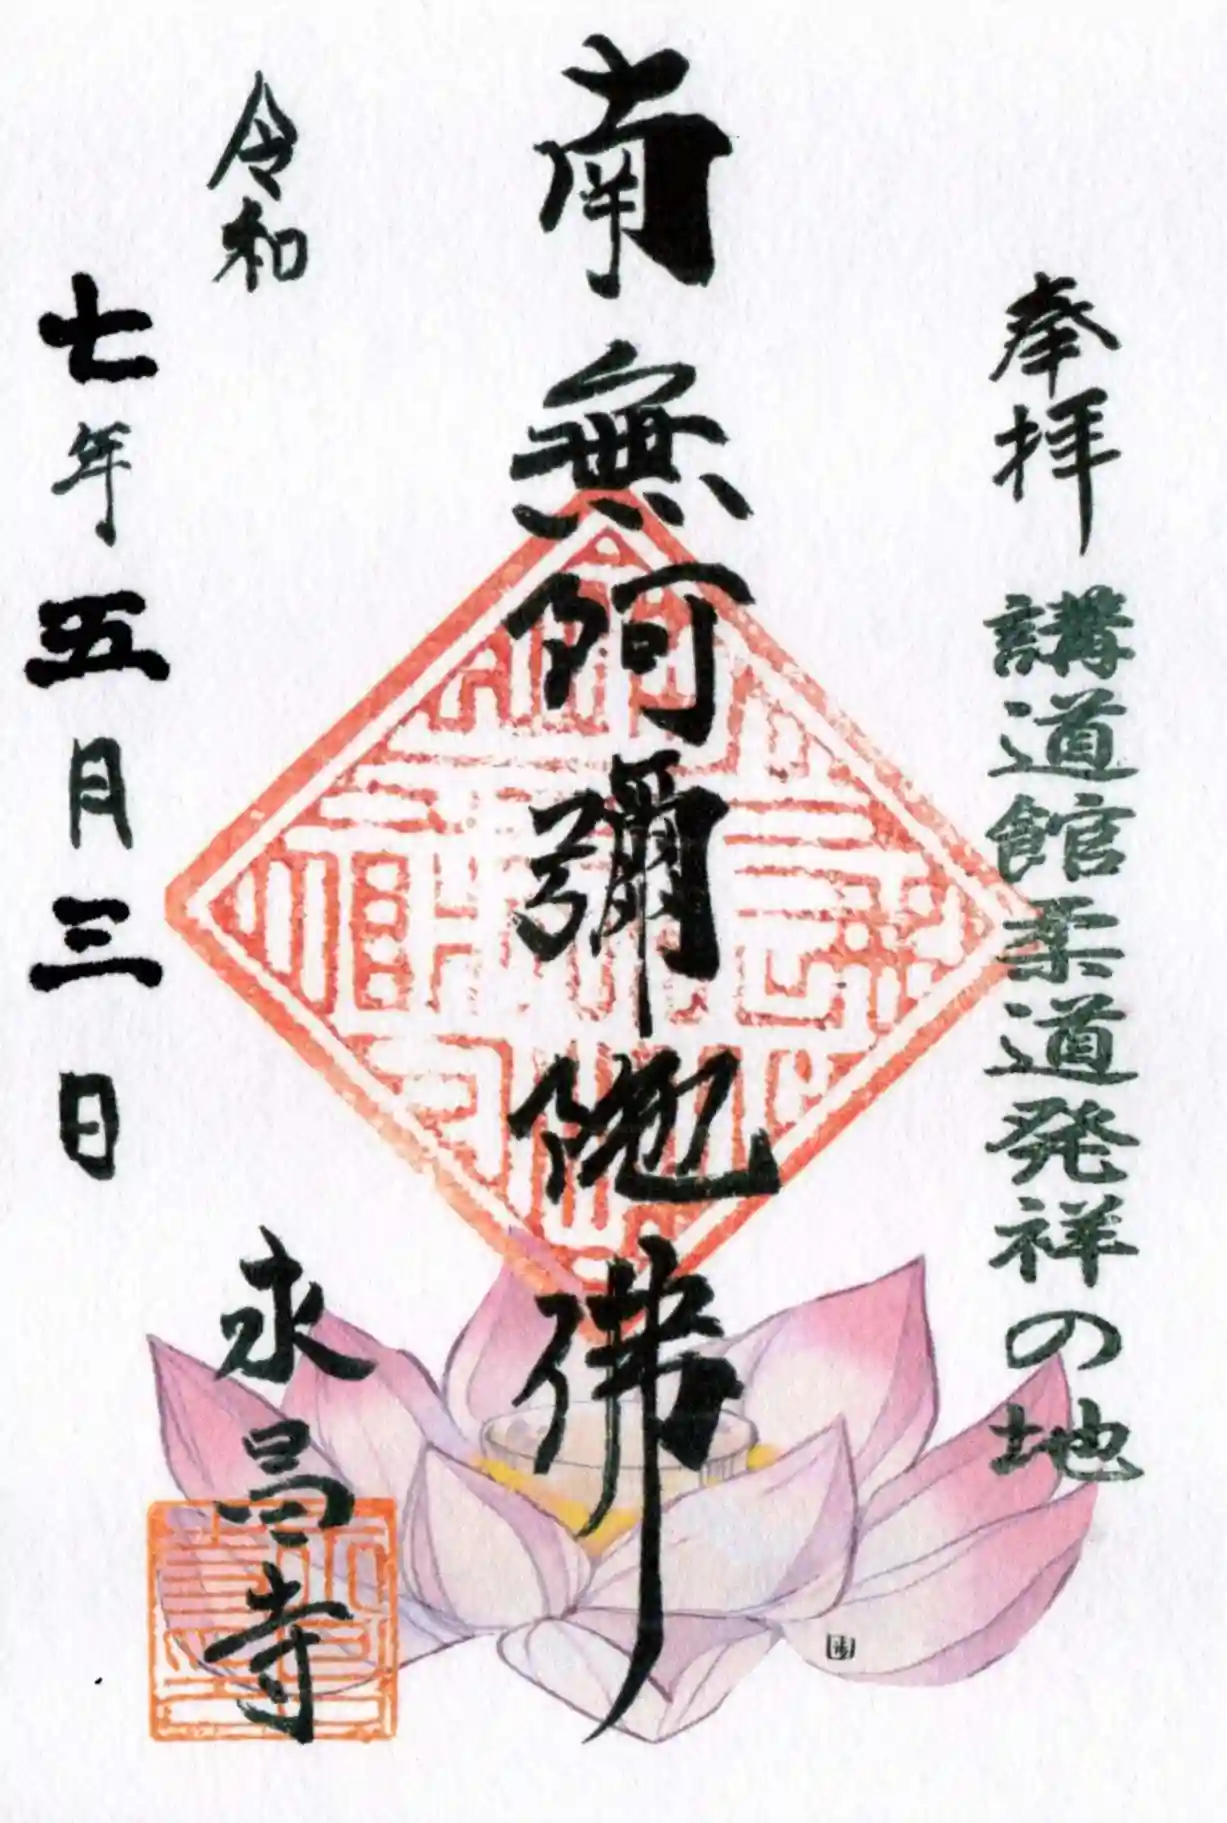 奉拝
講道館柔道発祥の地
南無阿彌陀佛
令和
七年五月三日
永昌寺